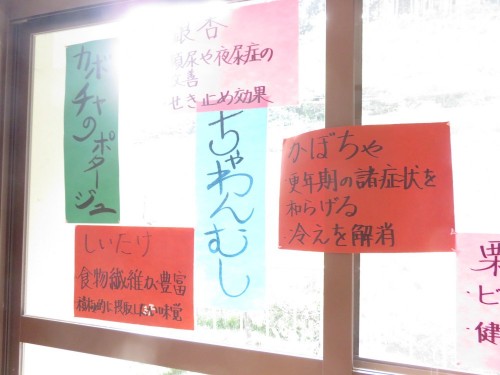 カボチャのポタージュ
頻尿や夜尿症の
改善
せき止め効果
ちゃわんむし
かぼちゃ
更年期の諸症状を
和らげる
冷えを解消
しいたけ
食物繊維が豊富
積極的に摂取したい味覚
栗